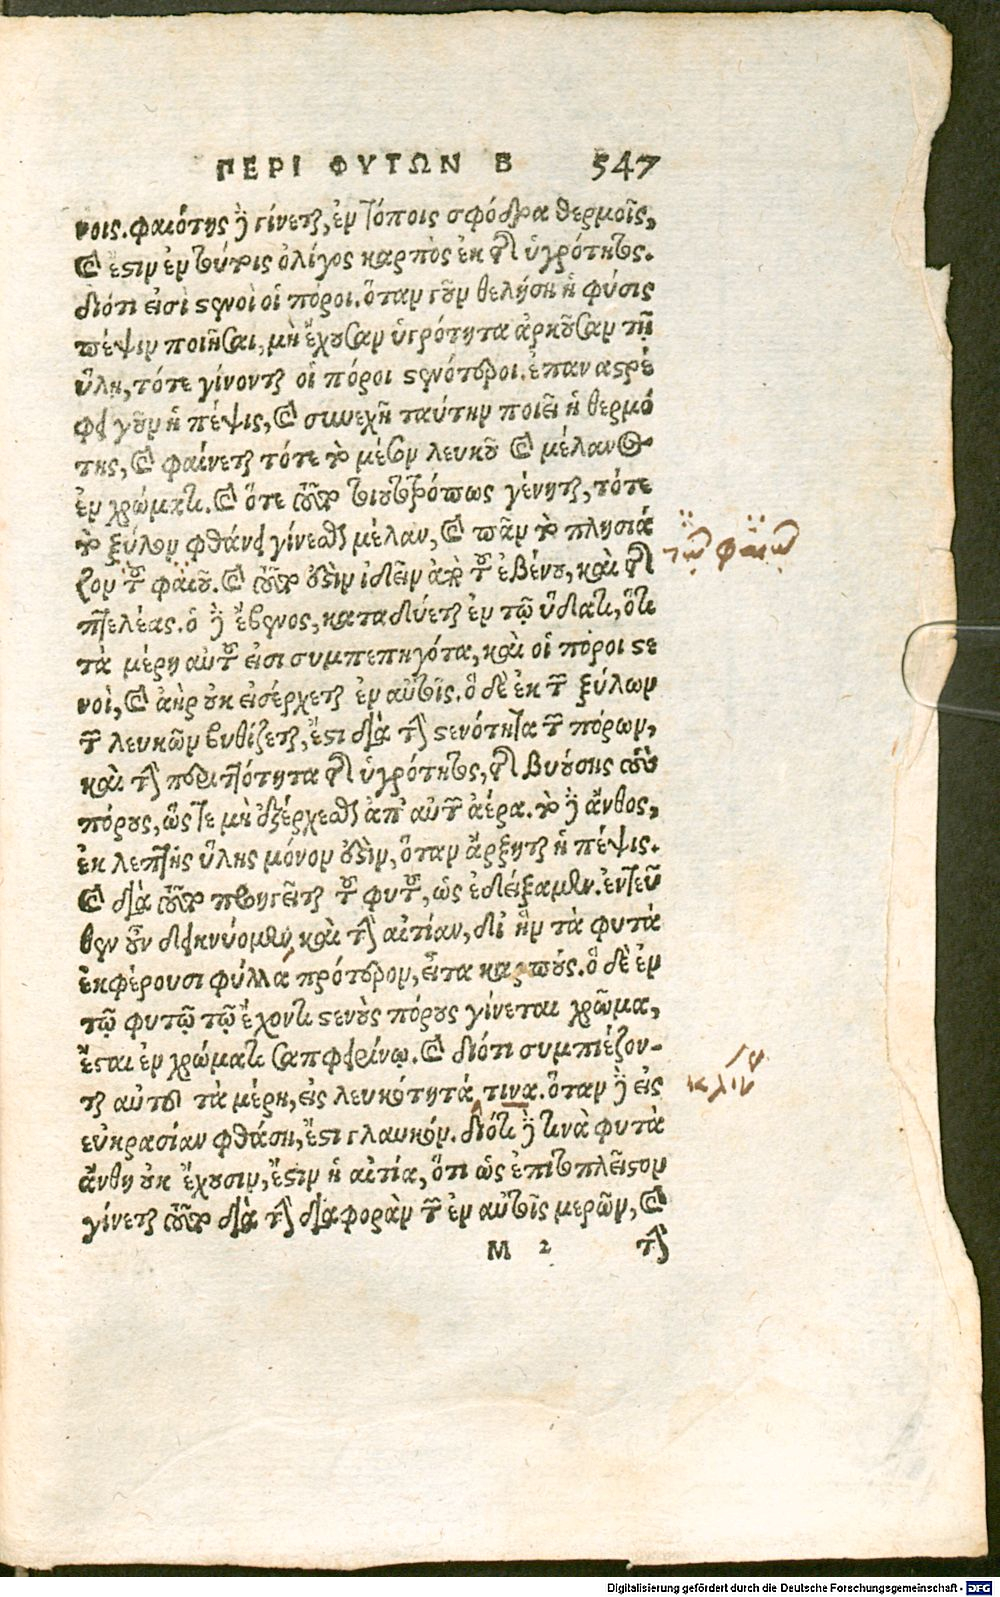 ΠΕΡΙ ΦΥΤΩΝ Β 547
νοις. φαιότης δὲ γίνεται, ἐν τόποις σφόδρα θερμοῖς,
καὶ ἔστιν ἐν τούτοις ὀλίγος καρπὸς ἐκ τῆς ὑγρότητος.
διότι εἰσὶ στενοὶ οἱ πόροι. ὅταν γοῦν θελήσῃ ἡ φύσις
πέψιν ποιῆσαι, μὴ ἔχουσαν ὑγρότητα ἀρκοῦσαν τῇ
ὕλῃ, τότε γίνονται οἱ πόροι στενότεροι. ἐπαναστρέ
φει γοῦν ἡ πέψις, καὶ συνεχῆ ταύτην ποιεῖ ἡ θερμό
της, καὶ φαίνεται τότε τὸ μέσον λευκοῦ καὶ μέλανος
ἐν χρώματι. καὶ ὅτε τοῦτο τουτοτρόπως γένηται, τότε
τὸ ξύλον φθάνει γίνεσθαι μέλαν, καὶ πᾶν τὸ πλησιά
ζον τοῦ φαιοῦ. καὶ τοῦτο ἔστιν ἰδεῖν ἀπὸ τοῦ ἐβένου, καὶ τῆς
πτελέας. ὁ δὲ ἔβενος, καταδύεται ἐν τῷ ὕδατι, ὅτι
τὰ μέρη αὐτοῦ εἰσι συμπεπηγότα, καὶ οἱ πόροι στε
νοὶ, καὶ ἀὴρ οὐκ εἰσέρχεται ἐν αὐτοῖς. ὃ δὲ ἐκ τῶν ξύλων
τῶν λευκῶν βυθίζεται, ἔστι διὰ τὴν στενότητα τῶν πόρων,
καὶ τὴν περιττότητα τῆς ὑγρότητος, τῆς βυούσης τοὺς
πόρους, ὥστε μὴ ἐξέρχεσθαι ἀπ' αὐτῶν ἀέρα. τὸ δὲ ἄνθος,
ἐκ λεπτῆς ὕλης μόνον ἐστὶν, ὅταν ἄρξηται ἡ πέψις.
καὶ διὰ τοῦτο προηγεῖται τοῦ φυτοῦ, ὡς ἐδείξαμεν. ἐντεῦ
θεν οὖν δεικνύομεν, καὶ τὴν αἰτίαν, δι' ἣν τὰ φυτὰ
ἐκφέρουσι φύλλα πρότερον, εἶτα καρπούς. ὃ δὲ ἐν
τῷ φυτῷ τῷ ἔχοντι στενοὺς πόρους γίνεται χρῶμα,
ἔσται ἐν χρώματι σαπφειρίνῳ. καὶ διότι συμπιέζον-
ται αὐτοῦ τὰ μέρη, εἰς λευκότητά τινα. ὅταν δὲ εἰς
εὐκρασίαν φθάσῃ, ἔστι γλαυκόν. διότι δὲ τινὰ φυτὰ
ἄνθη οὐκ ἔχουσιν, ἔστιν ἡ αἰτία, ὅτι ὡς ἐπιτοπλεῖστον
γίνεται τοῦτο διὰ τὴν διαφορὰν τῶν ἐν αὐτοῖς μερῶν, καὶ
Μ 2 τὴν
τῷ φαιῷ
κλίν
Digitalisierung gefördert durch die Deutsche Forschungsgemeinschaft - DFG